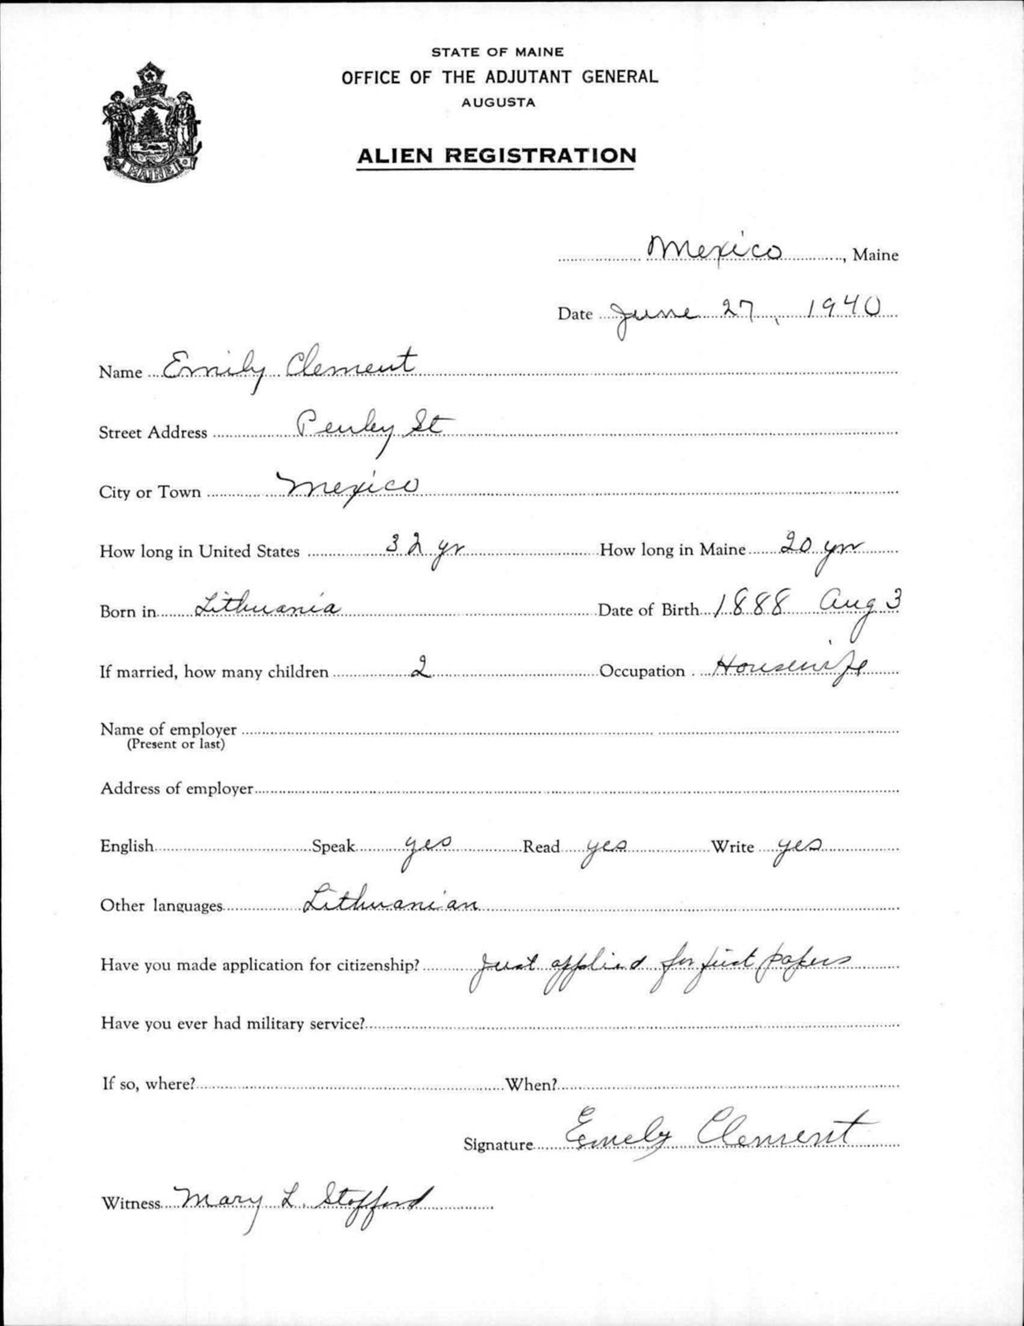 STATE OF MAINE
OFFICE OF THE ADJUTANT GENERAL
AUGUSTA
ALIEN REGISTRATION
MAINE
Mexico, Maine
Date June 27, 1940
Name Emily Clement
Street Address Penley St
City or Town Mexico
How long in United States 32 yr How long in Maine 20 yr
Born in Lithuania Date of Birth 1888 Aug 3
If married, how many children 2 Occupation Housewife
Name of employer
(Present or last)
Address of employer
English Speak yes Read yes Write yes
Other languages Lithuanian
Have you made application for citizenship? Just applied for first papers
Have you ever had military service?
If so, where? When?
Signature Emely Clement
Witness Mary L. Stofford